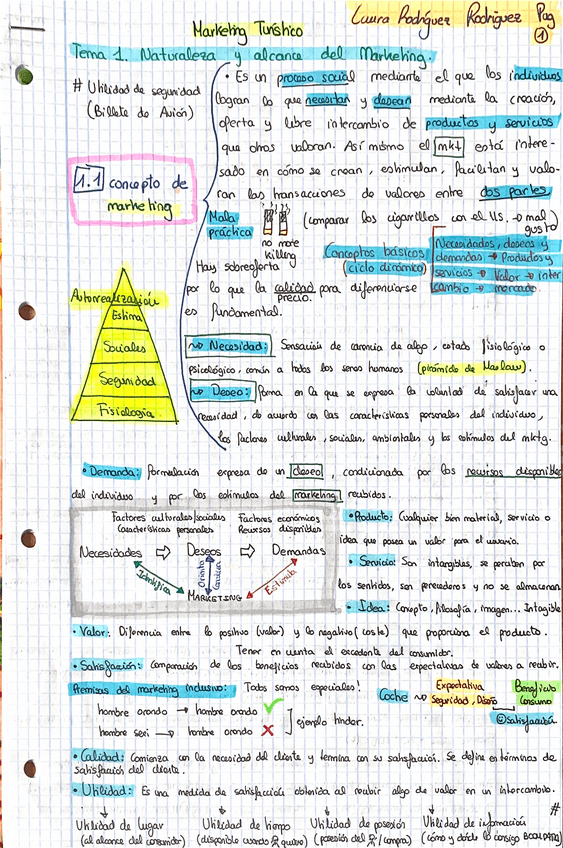 Laura Rodríguez Rodríguez Pag 1
Marketing Turístico
Tema 1. Naturaleza y alcance del Marketing.
# Utilidad de seguridad
(Billete de Avión)
1.1 concepto de
marketing
• Es un proceso social mediante el que los individuos
logran lo que necesitan y desean mediante la creación,
oferta y libre intercambio de productos y servicios
que otros valoran. Así mismo el mkt está intere-
sado en cómo se crean, estimulan, facilitan y valo-
ran las transacciones de valores entre dos partes
Mala
práctica
no more
killing
(comparar los cigarrillos con el 11S. → mal
gusto)
Conceptos básicos
(ciclo dinámico)
Necesidades, deseos y
demandas → Productos y
servicios → Valor → inter
cambio → mercado.
Hay sobreoferta
por lo que la calidad para diferenciarse
precio.
es fundamental.
Autorrealización
Estima
Sociales
Seguridad
Fisiología
~> Necesidad: Sensación de carencia de algo, estado fisiológico o
psicológico, común a todos los seres humanos (pirámide de Maslaw).
~> Deseo: forma en la que se expresa la voluntad de satisfacer una
necesidad, de acuerdo con las características personales del individuo,
los factores culturales, sociales, ambientales y los estímulos del mktg.
• Demanda: formulación expresa de un deseo, condicionada por los recursos disponibles
del individuo y por los estímulos del marketing recibidos.
Factores culturales/sociales
Características personales
Factores económicos
Recursos disponibles
Necesidades ⇨ Deseos ⇨ Demandas
Identifica
Orienta
Estimula
MARKETING
• Producto: Cualquier bien material, servicio o
idea que posea un valor para el usuario.
• Servicio: Son intangibles, se perciben por
los sentidos, son perecederos y no se almacenan
• Idea: Concepto, filosofía, imagen... Intagible
• Valor: Diferencia entre lo positivo (valor) y lo negativo (coste) que proporciona el producto.
Tener en cuenta el excedente del consumidor.
• Satisfacción: Comparación de los beneficios recibidos con las expectativas de valores a recibir.
Premisas del marketing inclusivo: Todos somos especiales!
hombre orondo → hombre orondo ✓
hombre sexi → hombre orondo X
ejemplo tinder.
Coche ~> Expectativa
Seguridad, Diseño
Beneficio
Consumo
satisfacción
• Calidad: Comienza con la necesidad del cliente y termina con su satisfacción. Se define en términos de
satisfacción del cliente.
• Utilidad: Es una medida de satisfacción obtenida al recibir algo de valor en un intercambio.
#
Utilidad de lugar
(al alcance del consumidor)
Utilidad de tiempo
(disponible cuando quiero)
Utilidad de posesión
(posesión del /compra)
Utilidad de información
(cómo y dónde lo consigo